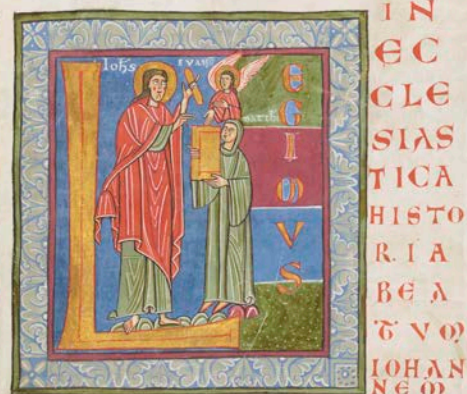 Iohs
L
E
G
I
M
V
S
IN
EC
CLE
SIAS
TICA
HISTO
R. IA
BE A
TVM
IOHAN
NEM